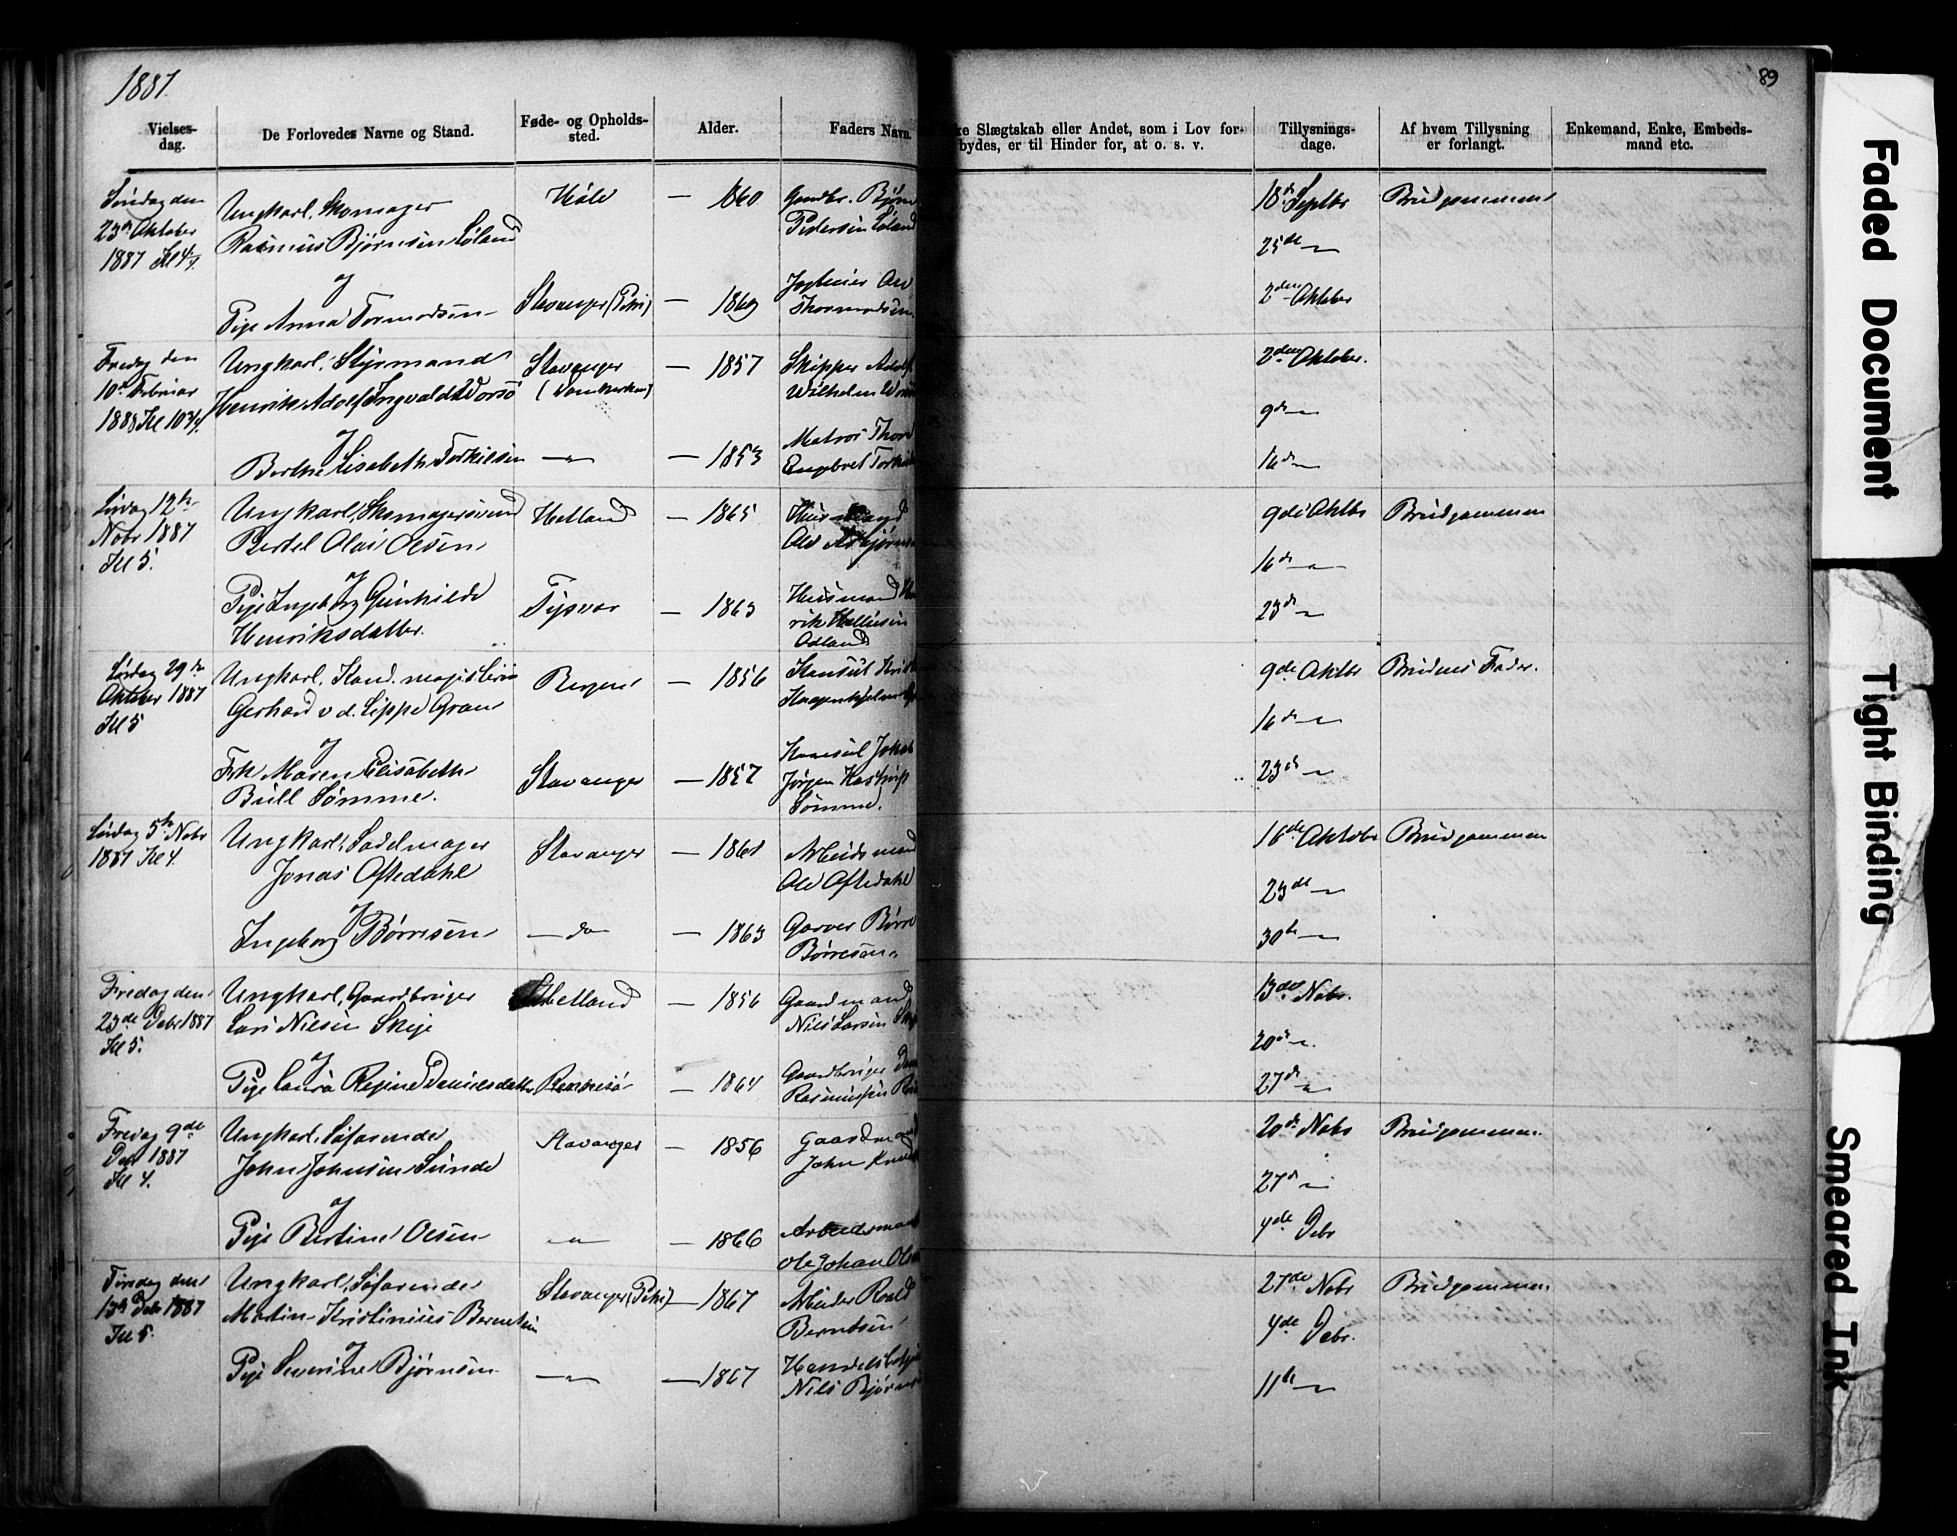 1887.
89
Vielses-
dag.
De Forlovedes Navne og Stand.
Føde- og Opholds-
sted.
Alder.
Faders Navn.
ke Slægtskab eller Andet, som i Lov for-
bydes, er til Hinder for, at o. s. v.
Tillysnings-
dage.
Af hvem Tillysning
er forlangt.
Enkemand, Enke, Embeds-
mand etc.
Søndag den
23de Oktober
1887 Kl 4
Ungkarl, Skomager
Rasmus Bjørnsen Løland
&
Pige Anna Tormodsen
Høle
Stavanger (Petri)
— 1860
— 1869
Gaardbr. Bjørn
Pedersen Løland
Ole
Thormodsen
18de Septbr
25de —"—
2den Oktober
Brudgommen
Fredag den
10de Februar
1888 Kl 10¾
Ungkarl, Styrmand
Henrik Adolf Ingvald Worsø
&
Berthe Lisabeth Torkilsen
Stavanger
(Domkirken)
—"—
— 1857
— 1853
Skipper Adolf
Wilhelm
Matros Thore
Engebret
2den Oktober.
9de —"—
16de —"—
Lørdag 12te
Nobr 1887
Kl 5.
Ungkarl, Skomagersvend
Bertel Olai Olsen
&
Pige Ingeborg Gunhilde
Henriksdatter.
Hetland
Tysvær
— 1865
— 1863
Husmand
Ole
Husmand
rik
9de Oktbr
16de —"—
23de —"—
Brudgommen
Lørdag 29de
Oktober 1887
Kl 5
Ungkarl, Kand. magisterii
Gerhard v. d. Lippe Gran
&
Frk Maren Elisabeth
Bull Sømme.
Bergen
Stavanger
— 1856
— 1857
Konsul
Konsul
Jørgen Kastrup
Sømme.
9de Oktbr
16de —"—
23de —"—
Brudens Fader.
Lørdag 5te Nobr
1887 Kl 4.
Ungkarl, Sadelmager
Jonas Oftedahl
&
Ingeborg Børresen
Stavanger
— do —
— 1861
— 1863
Arbeidsmand
Ole Oftedahl
Garver Børre
Børresen
16de Oktobr
23de —"—
30te —"—
Brudgommen
Fredag den
23de Debr 1887
Kl 5.
Ungkarl, Gaardbruger
Lars Nilsen Skeje
&
Pige Laura Regine Danielsdatter
Hetland
Rennesø
— 1856
— 1864
Gaardmand
Nils Larsen
Gaardbruger
Rasmussen
13de Nobr.
20de —"—
27de —"—
Fredag 9de
Debr 1887
Kl 4.
Ungkarl, Søfarende
John Johnsen Sunde
&
Pige Bertine Olsen
Stavanger
—"—
— 1856
— 1866
Gaardmand
John
Arbeidsmand
Ole Johan
20de Nobr
27de —"—
4de Debr
Brudgommen
Tirsdag den
13de Debr 1887
Kl 5.
Ungkarl, Søfarende
Martin Kristinius Berntsen
&
Pige Severine Bjørnsen
Stavanger (Petri)
—"—
— 1867
— 1867
Arbeider Roald
Berntsen
Nils
27de Nobr
4de Debr.
11te —"—
Brudgommen
Faded Document
Tight Binding
Smeared Ink